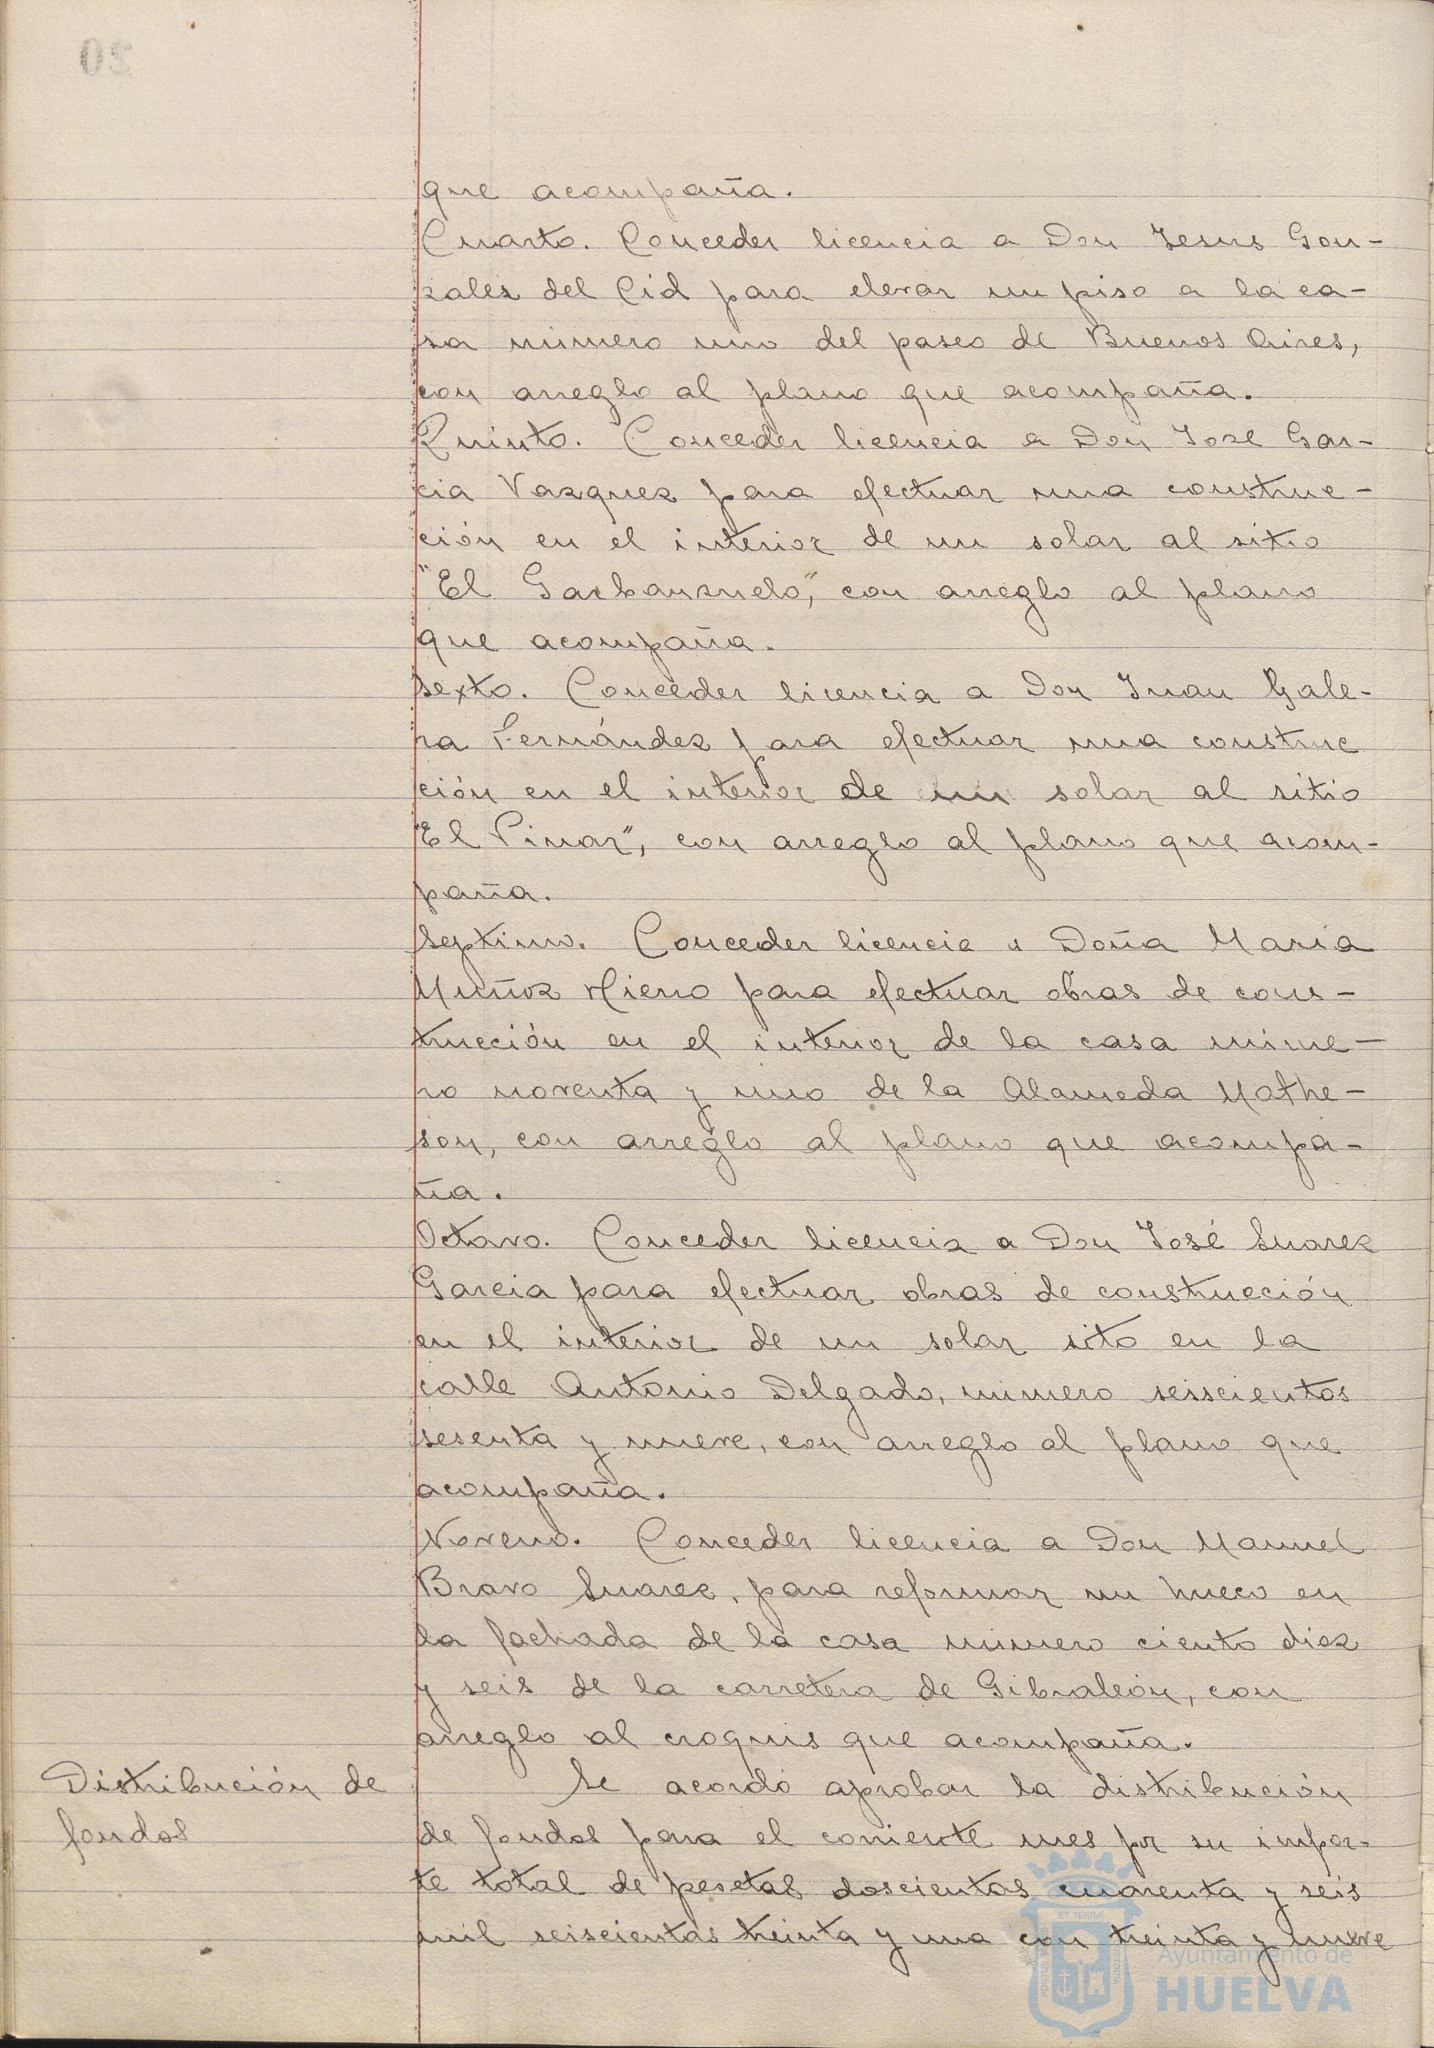 20
que acompaña.
Cuarto. Conceder licencia a Don Jesus Gon-
zalez del Cid para elevar un piso a la ca-
sa número uno del paseo de Buenos Aires,
con arreglo al plano que acompaña.
Quinto. Conceder licencia a Don José Gar-
cia Vazquez para efectuar una construc-
ción en el interior de un solar al sitio
"El Garbanzuelo", con arreglo al plano
que acompaña.
Sexto. Conceder licencia a Don Juan Gale-
ra Fernández para efectuar una construc
ción en el interior de un solar al sitio
"El Pinar", con arreglo al plano que acom-
paña.
Septimo. Conceder licencia a Doña Maria
Muñoz Hierro para efectuar obras de cons-
trucción en el interior de la casa núme-
ro noventa y uno de la Alameda Mathe-
son, con arreglo al plano que acompa-
ña.
Octavo. Conceder licencia a Don José Suarez
Garcia para efectuar obras de construcción
en el interior de un solar sito en la
calle Antonio Delgado, número seiscientos
sesenta y nueve, con arreglo al plano que
acompaña.
Noveno. Conceder licencia a Don Manuel
Bravo Suarez, para reformar un hueco en
la fachada de la casa número ciento diez
y seis de la carretera de Gibraleón, con
arreglo al croquis que acompaña.
Distribución de
fondos
Se acordó aprobar la distribución
de fondos para el corriente mes por su impor-
te total de pesetas doscientas cuarenta y seis
mil seiscientas treinta y una con treinta y nueve
Ayuntamiento de
HUELVA